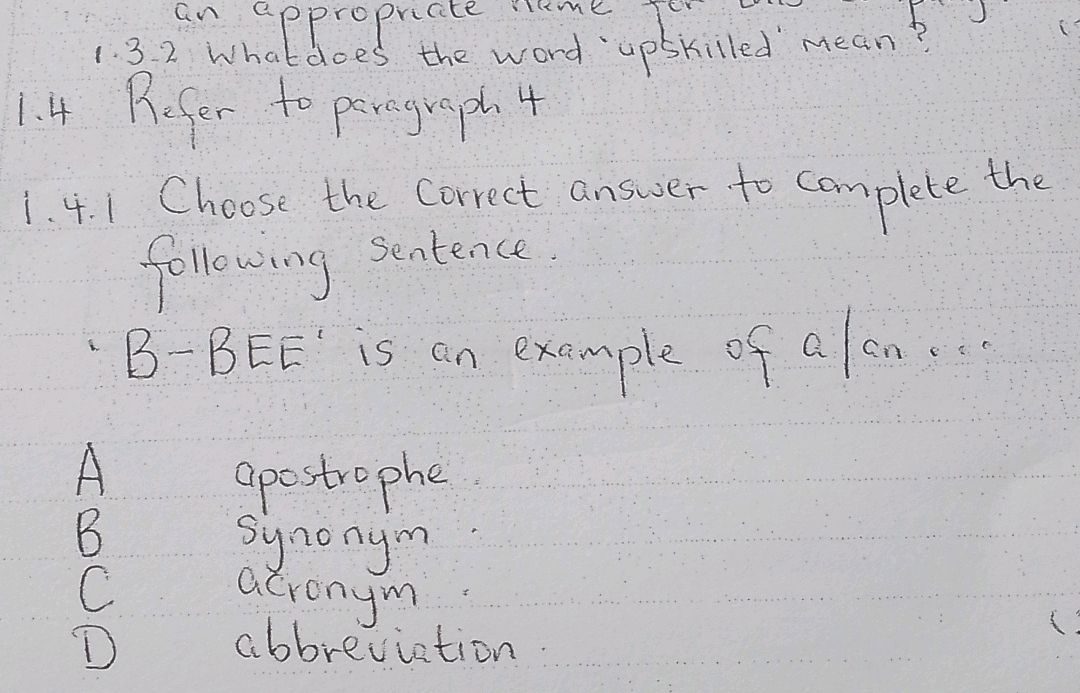 an appropriate name for
1.3.2 What does the word 'upskilled' mean?
1.4 Refer to paragraph 4
1.4.1 Choose the correct answer to complete the
following sentence.
'B-BEE' is an example of a/an ...
A apostrophe.
B synonym.
C acronym.
D abbreviation.